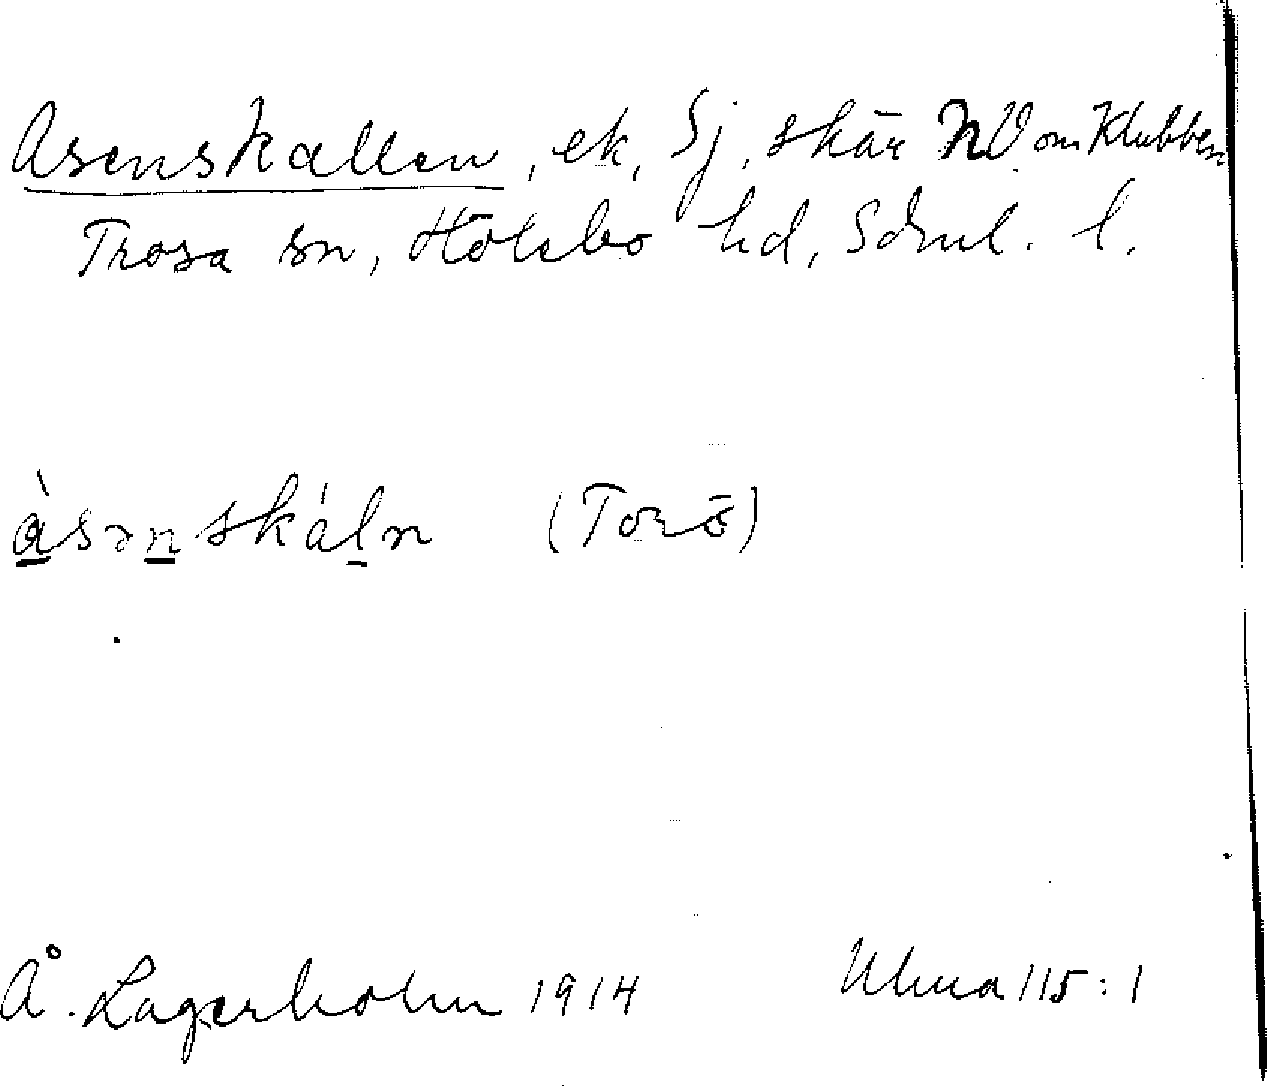 Asenskallen, ek, Sj, skär NV om Klubben
Trosa sn, Hölebo hd, Sdml. l.
àsənskáln (Torö)
Å. Lagerholm 1914 Ulma 115:1